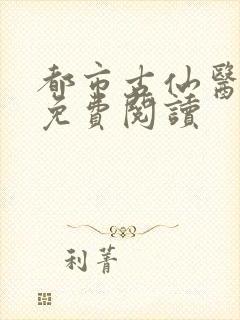 都市古仙醫
免費閱讀
利菁